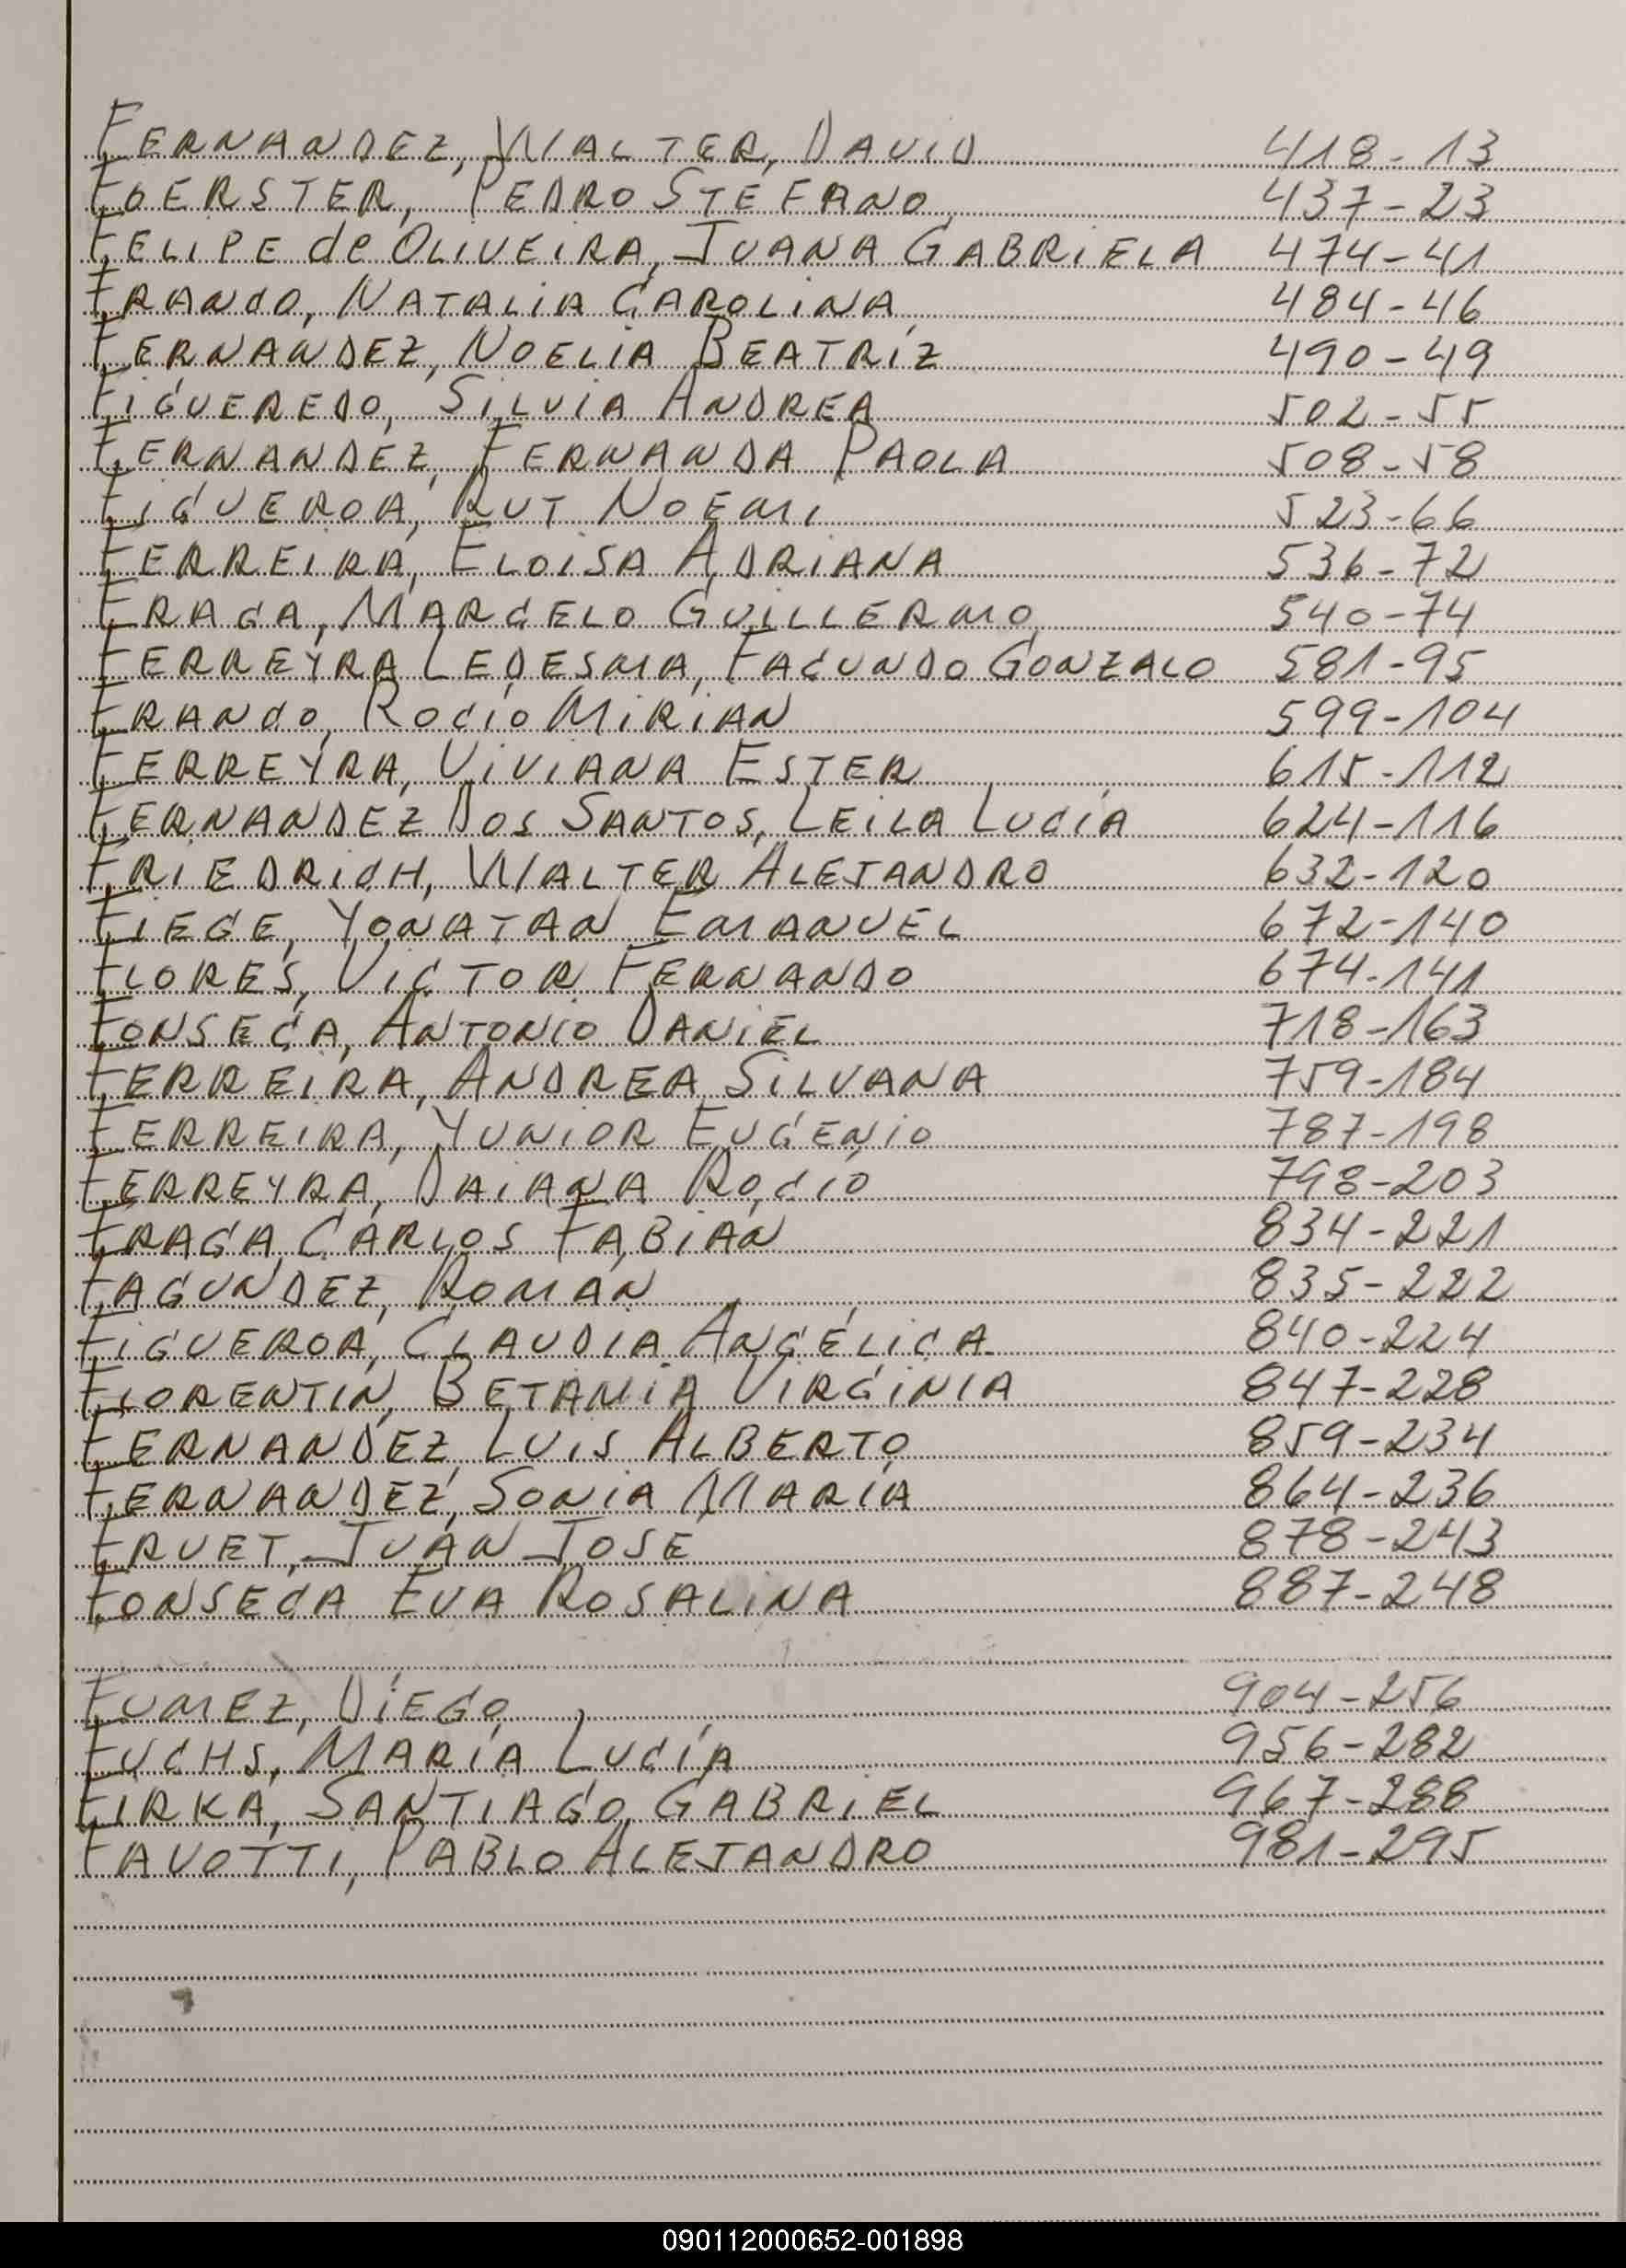 FERNANDEZ, WALTER, DAVID 418-13
FOERSTER, PEDRO STEFANO 437-23
FELIPE de OLIVEIRA, JUANA GABRIELA 474-41
FRANCO, NATALIA CAROLINA 484-46
FERNANDEZ, NOELIA BEATRÍZ 490-49
FIGUEREDO, SILVIA ANDREA 502-55
FERNANDEZ, FERNANDA PAOLA 508-58
FIGUEROA, RUT NOEMI 523-66
FERREIRA, ELOISA ADRIANA 536-72
FRAGA, MARCELO GUILLERMO 540-74
FERREYRA LEDESMA, FACUNDO GONZALO 581-95
FRANCO, ROCIO MIRIAN 599-104
FERREYRA, VIVIANA ESTER 615-112
FERNANDEZ DOS SANTOS, LEILA LUCÍA 624-116
FRIEDRICH, WALTER ALEJANDRO 632-120
FIEGE, YONATAN EMANUEL 672-140
FLORES, VICTOR FERNANDO 674-141
FONSECA, ANTONIO DANIEL 718-163
FERREIRA, ANDREA SILVANA 759-184
FERREIRA, YUNIOR EUGENIO 787-198
FERREYRA, DAIANA ROCÍO 798-203
FRAGA, CARLOS FABIAN 834-221
FAGUNDEZ, ROMAN 835-222
FIGUEROA, CLAUDIA ANGÉLICA 840-224
FLORENTIN, BETANIA VIRGINIA 847-228
FERNANDEZ, LUIS ALBERTO 859-234
FERNANDEZ, SONIA MARÍA 864-236
FRUET, JUAN JOSE 878-243
FONSECA EVA ROSALINA 887-248
FUMEZ, DIEGO 904-256
FUCHS, MARÍA LUCÍA 956-282
FIRKA, SANTIAGO GABRIEL 967-288
FAVOTTI, PABLO ALEJANDRO 981-295
090112000652-001898